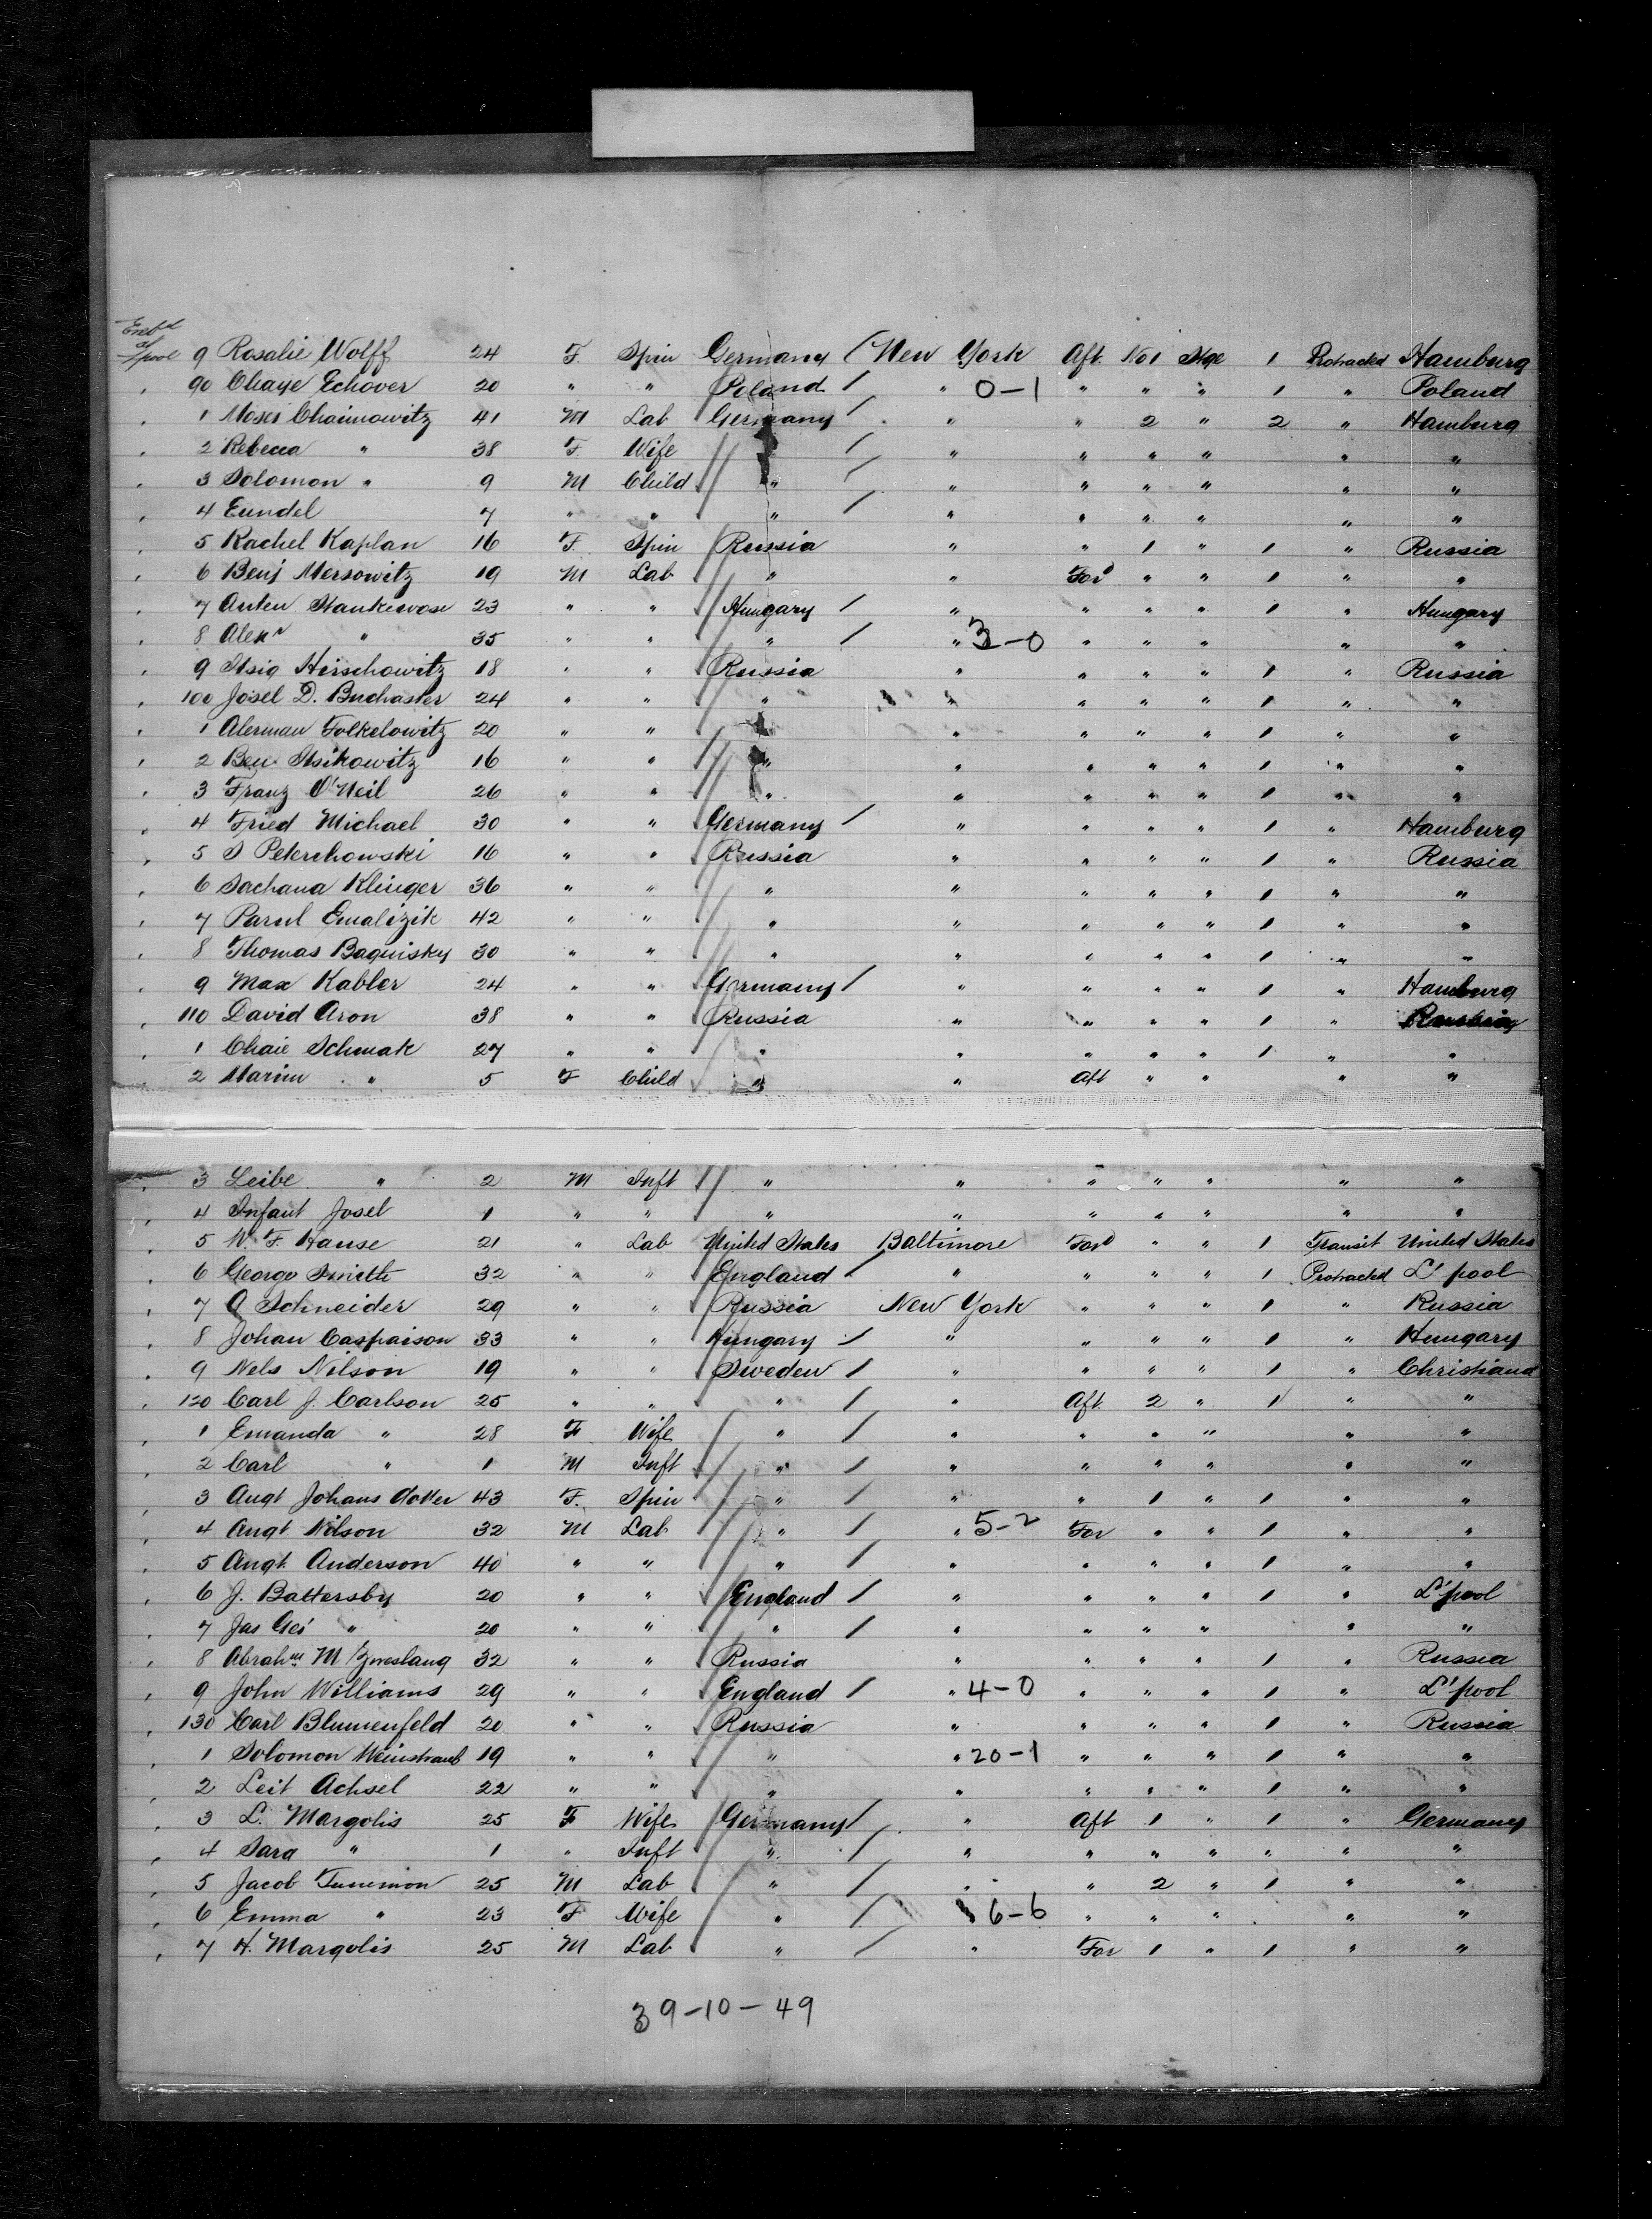 Emb'd
at
L'pool 9 Rosalie Wolff 24 F. Spin Germany New York Aft No 1 Stge 1 Protracted Hamburg
" 90 Chaye Echover 20 " " Poland / " 0-1 " " " 1 " Poland
" 1 Moses Chaimowitz 41 M Lab Germany / " " 2 " 2 " Hamburg
" 2 Rebecca " 38 F. Wife / " " " " " "
" 3 Solomon " 9 M Child " / " " " " " "
" 4 Eundel 7 " " " / " " " " " "
" 5 Rachel Kaplan 16 F. Spin Russia " " 1 " 1 " Russia
" 6 Benj Mersowitz 19 M Lab " " For'd " " 1 " "
" 7 Anten Stankewose 23 " " Hungary / " " " " 1 " Hungary
" 8 Alexr " 35 " " " / " 3-0 " " " " "
" 9 Itsig Hirschowitz 18 " " Russia " " " " 1 " Russia
" 100 Josel D. Buchaster 24 " " " " " " " 1 " "
" 1 Alerman Folkelowitz 20 " " " " " " 1 " "
" 2 Ben. Itsikowitz 16 " " " " " " " 1 " "
" 3 Franz O'Neil 26 " " " " " " " 1 " "
" 4 Fried Michael 30 " " Germany / " " " " 1 " Hamburg
" 5 S Peterchowski 16 " " Russia " " " " 1 " Russia
" 6 Sachana Klinger 36 " " " " " " " 1 " "
" 7 Parul Emalizik 42 " " " " " " " 1 " "
" 8 Thomas Baguisky 30 " " " " " " " 1 " "
" 9 Max Kabler 24 " " Germany / " " " " 1 " Hamburg
" 110 David Aron 38 " " Russia " " " " 1 " Russia
" 1 Chaie Schmak 27 " " " " " " " 1 " "
" 2 Marim " 5 F Child " " Aft " " " "
" 3 Leibe " 2 M Inft " " " " " " "
" 4 Infant Josel 1 " " " " " " " " "
" 5 W. F. Hause 21 " Lab United States Baltimore For'd " " 1 Transit United States
" 6 George Smith 32 " " England / " " " " 1 Protracted L'pool
" 7 A Schneider 29 " " Russia New York " " " 1 " Russia
" 8 Johan Caspaison 33 " " Hungary / " " " " 1 " Hungary
" 9 Nels Nilson 19 " " Sweden / " " " " 1 " Christiana
" 120 Carl J. Carlson 25 " " " / " Aft 2 " 1 " "
" 1 Emanda " 28 F Wife " / " " " " " "
" 2 Carl " 1 M Inft " / " " " " " "
" 3 Augt Johans dotter 43 F. Spin " / " " 1 " 1 " "
" 4 Augt Nilson 32 M Lab " / " 5-2 For " " 1 " "
" 5 Augt. Anderson 40 " " " / " " " " 1 " "
" 6 J. Battersby 20 " " England / " " " " 1 " L'pool
" 7 Jas Geo " 20 " " " / " " " " " "
" 8 Abrahm M 32 " " Russia " " " " 1 " Russia
" 9 John Williams 29 " " England / " 4-0 " " " 1 " L'pool
" 130 Carl Blumenfeld 20 " " Russia " " " " 1 " Russia
" 1 Solomon Weinstraub 19 " " " " 20-1 " " " 1 " "
" 2 Leit Achsel 22 " " " " " " " 1 " "
" 3 L. Margolis 25 F Wife Germany / " Aft 1 " 1 " Germany
" 4 Sara " 1 " Inft " / " " " " " " "
" 5 Jacob Tunimon 25 M Lab " / " " 2 " 1 " "
" 6 Emma " 23 F Wife " / 6-6 " " " " "
" 7 H. Margolis 25 M Lab " / " For 1 " 1 " "
39-10-49